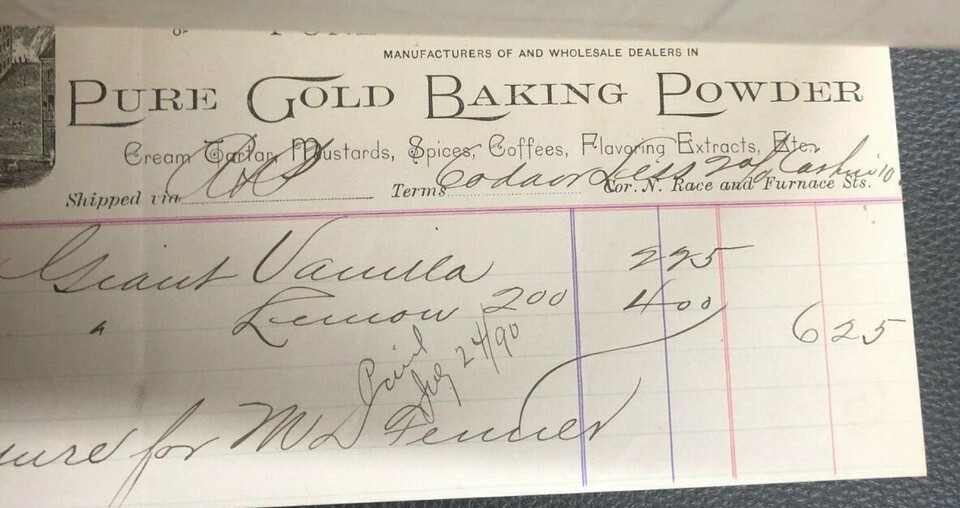 OF PURE
MANUFACTURERS OF AND WHOLESALE DEALERS IN
PURE GOLD BAKING POWDER
Cream Tartar, Mustards, Spices, Coffees, Flavoring Extracts, Etc.
Shipped via Terms Less 2% Cash in 10
Cor. N. Race and Furnace Sts.
Giant Vanilla 225
" Lemon 200 400 625
Paid
24/90
for M D Fenner